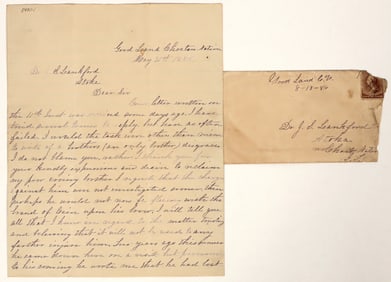 Good Land Choctaw Nation
May 21st
Lankford
Stoke
Dear Sir
Your letter written on
the 11th inst was over days ago. I have
tried several times to reply but have as often
failed. I would the task were other than mine
to write of a brothers (an only brother) disgrace
I do not blame you, neither I thank you for
your kindly expressions and desire to reclaim
my poor erring brother I regret that the charges
against him were not investigated sooner then
perhaps he would not now
brand of upon his brow, I will tell you
all that I know in regard to the matter
and believing that it will not be used to any
farther injure him. Two years ago this summer
he came down here on a visit but
to his coming he wrote me that he had lost
Good Land C.N.
8-18-90
Dr. J. S. Lankford
Atoka
Choctaw Nation